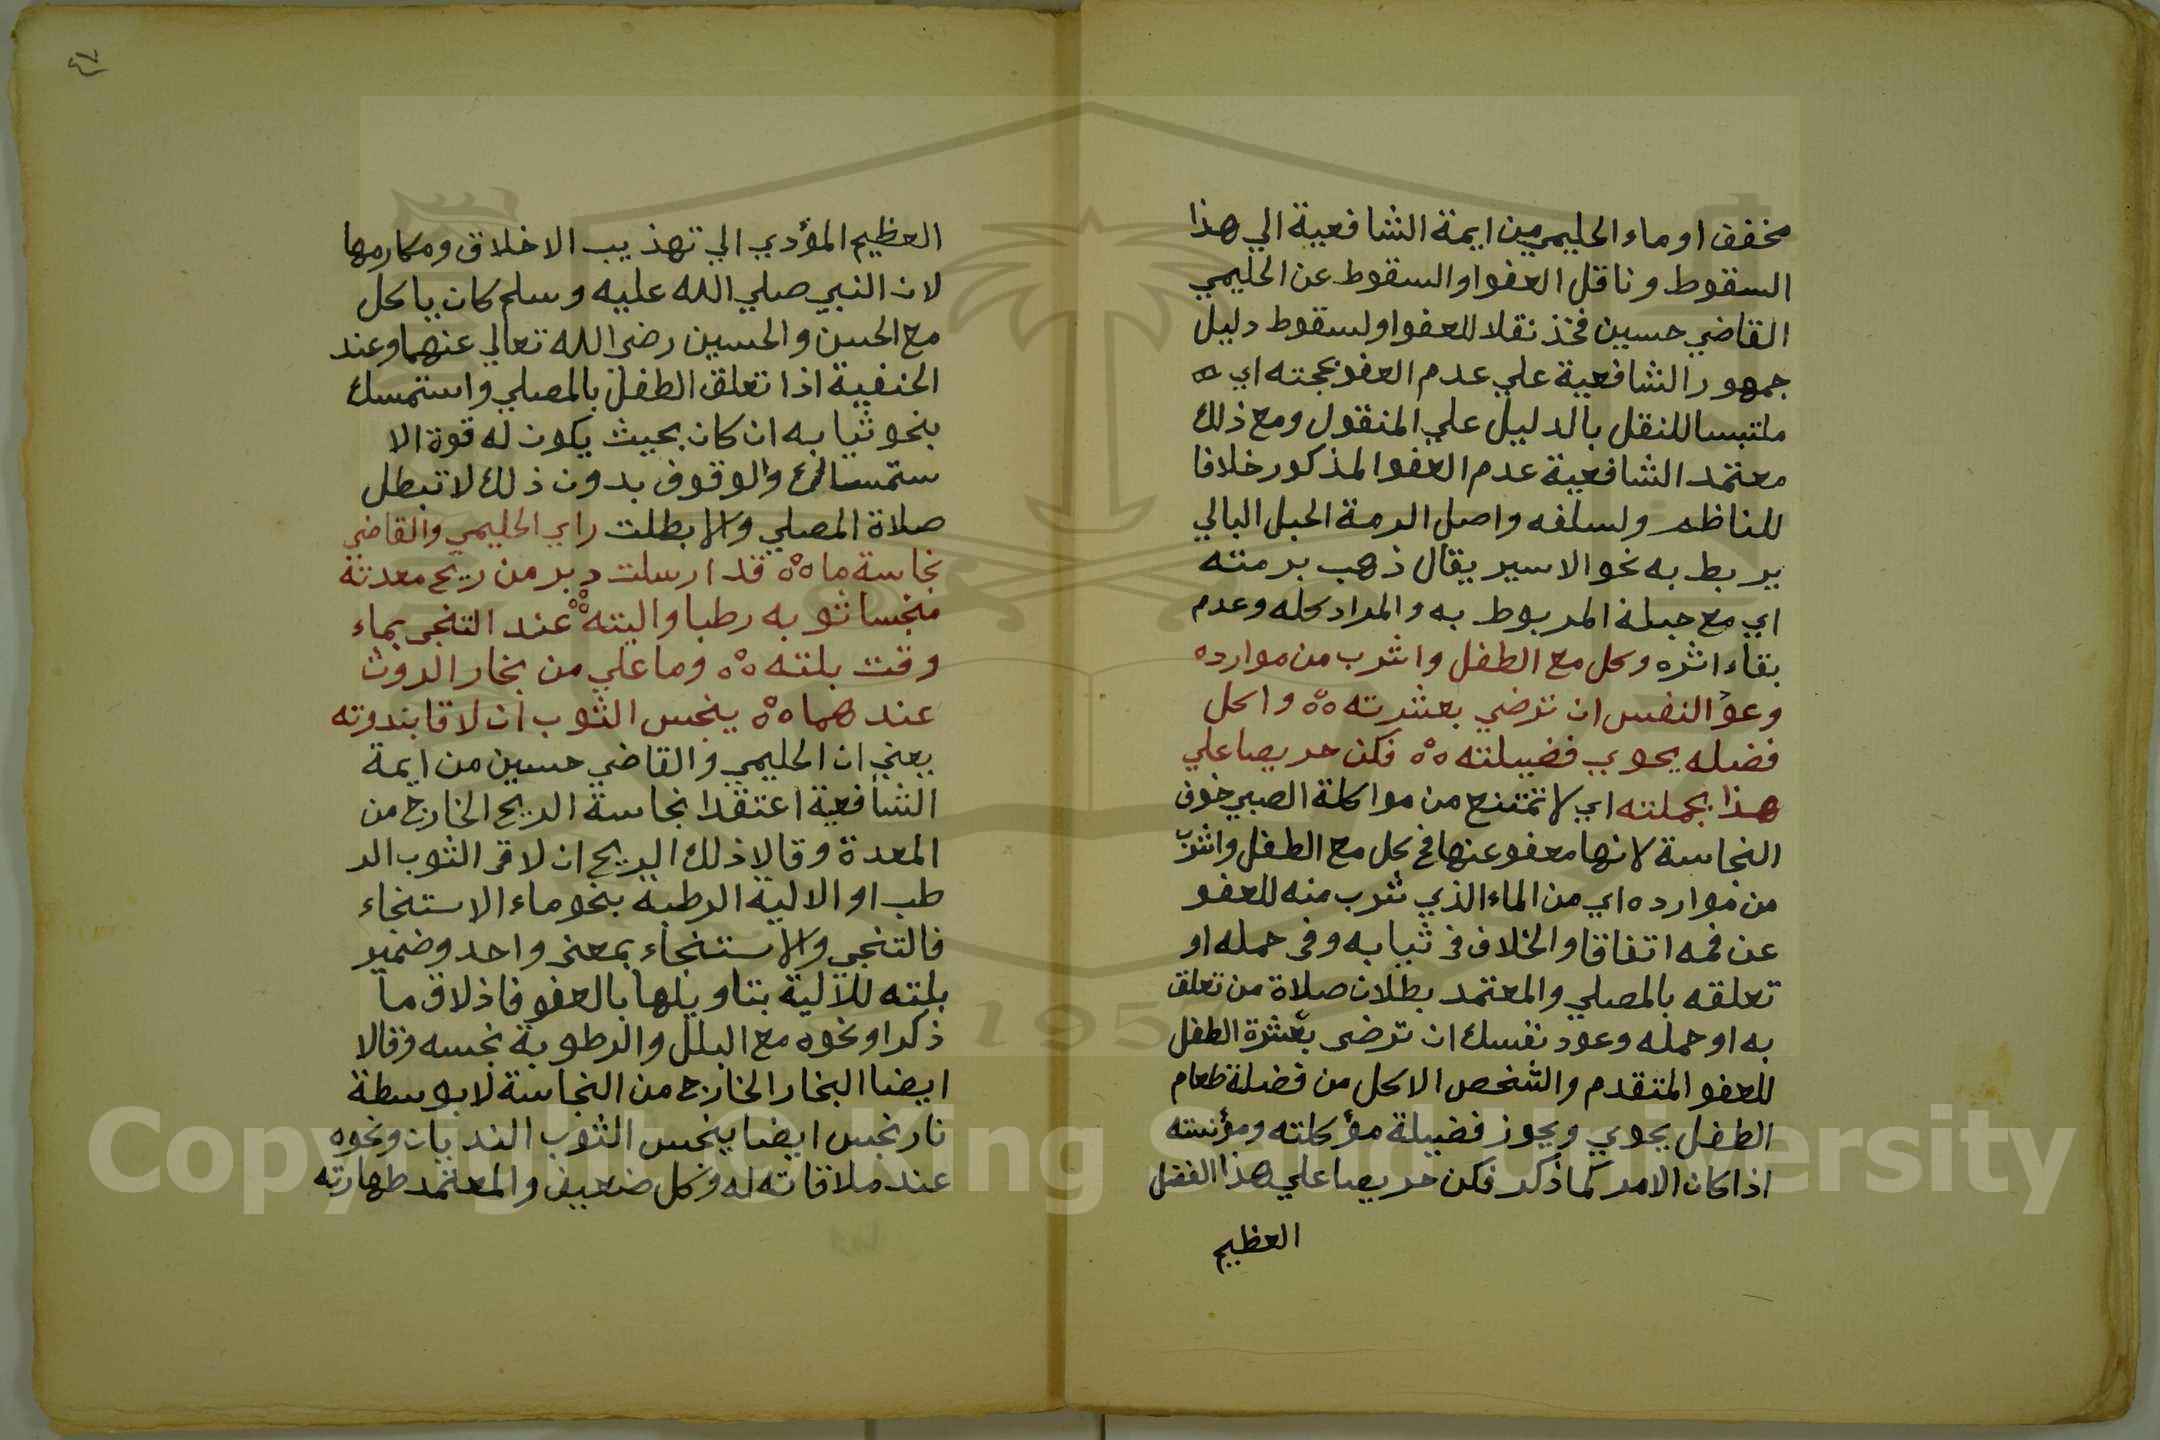 مخفف اوماء الحليمي من ايمة الشافعية الي هذا
السقوط وناقل العفو او السقوط عن الحليمي
القاضي حسين فخذ نقلا للعفو او لسقوط دليل
جمهور الشافعية علي عدم العفو بحجته اي
ملتبسا للنقل بالدليل علي المنقول ومع ذلك
معتمد الشافعية عدم العفو المذكور خلافا
للناظم ولسلفه واصل الرمة الحبل البالي
يربط به نحو الاسير يقال ذهب برمته
اي مع حبله المربوط به والمراد كله وعدم
بقاء اثره وكل مع الطفل واشرب من موارده
وعوّ النفس ان ترضي بعشرته ٥٥ واكل
فضله يحوي فضيلته ٥٥ فكن حريصا علي
هذا بجملته اي لا تمتنع من مواكلة الصبي خوف
النجاسة لانها معفو عنها فح كل مع الطفل واشرب
من موارده اي من الماء الذي شرب منه للعفو
عن فمه اتفاقا والخلاف في ثيابه وفي حمله او
تعلقه بالمصلي والمعتمد بطلان صلاة من تعلق
به او حمله وعود نفسك ان ترضى بعشرة الطفل
للعفو المتقدم والشخص الاكل من فضلة طعام
الطفل يحوي ويجوز فضيلة مؤكلته ومؤنسته
اذا كان الامر كما ذكر فكن حريصا علي هذا الفضل
العظيم
٤٧
العظيم المؤدي الي تهذيب الاخلاق ومكارمها
لان النبي صلي الله عليه وسلم كان ياكل
مع الحسن والحسين رضي الله تعالي عنهما وعند
الحنفية اذا تعلق الطفل بالمصلي واستمسك
بنحو ثيابه ان كان بحيث يكون له قوة الا
ستمساك والوقوف بدون ذلك لا تبطل
صلاة المصلي والا بطلت راي الحليمي والقاضي
نجاسة ما ٥٥ قد ارسلت دبر من ريح معدته
منجسا ثوبه رطبا واليته ٥٥ عند التنجي بماء
وقت بلته ٥٥ وما علي من بخار الروث
عندهما ٥٥ ينجس الثوب ان لاقا بندوته
يعني ان الحليمي والقاضي حسين من ايمة
الشافعية اعتقدا نجاسة الريح الخارج من
المعدة وقالا ذلك الريح ان لاقى الثوب الر
طب او الالية الرطبه بنحو ماء الاستنجاء
فالتنجي والاستنجاء بمعني واحد وضمير
بلته للالية بتاويلها بالعفو فاذ لاق ما
ذكر او نحوه مع البلل والرطوبة نجسه وقالا
ايضا البخار الخارج من النجاسة لا بوسطة
نار نجس ايضا ينجس الثوب النديان ونحوه
عند ملاقاته له وكل ضعيف والمعتمد طهارته